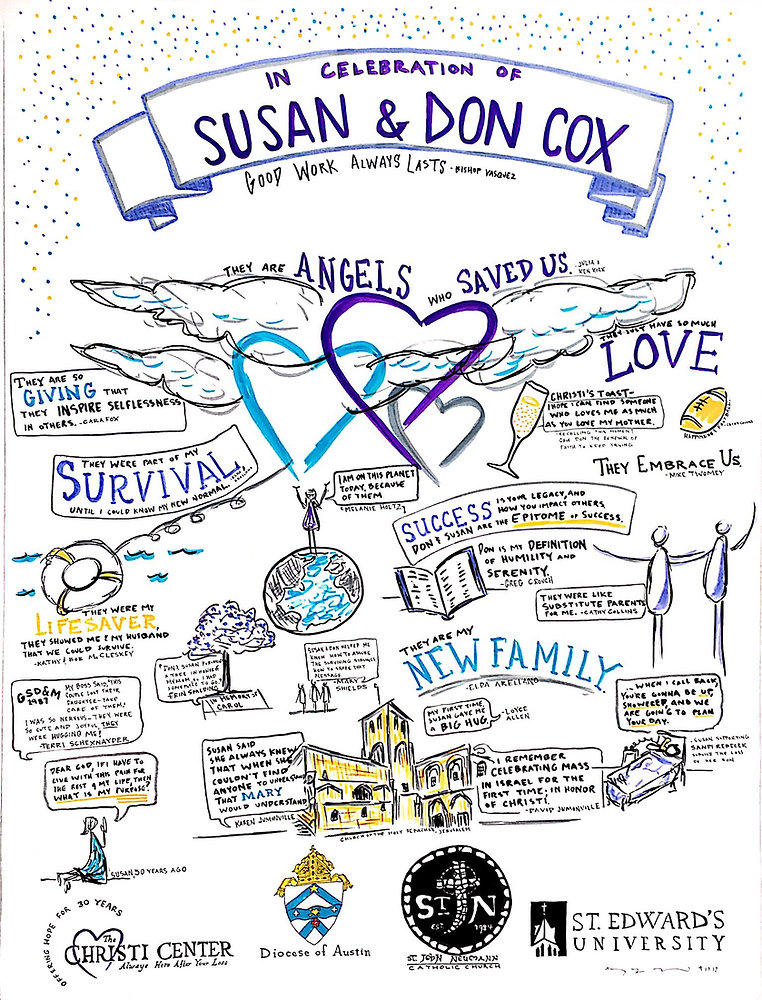 IN CELEBRATION OF
SUSAN & DON COX
GOOD WORK ALWAYS LASTS - BISHOP VASQUEZ
THEY ARE ANGELS WHO SAVED US. JULIA & KEN KIRK
THEY JUST HAVE SO MUCH
LOVE
THEY ARE SO
GIVING THAT
THEY INSPIRE SELFLESSNESS
IN OTHERS. - CARA FOX
CHRISTI'S TOAST-
I HOPE I CAN FIND SOMEONE
WHO LOVES ME AS MUCH
AS YOU LOVE MY MOTHER.
RECALLING THIS MOMENT
CAN
THE RENEWAL OF
FAITH TO KEEP
THEY WERE PART OF MY
SURVIVAL
UNTIL I COULD KNOW MY NEW NORMAL.
THEY EMBRACE US.
- MIKE TWOMEY
I AM ON THIS PLANET
TODAY, BECAUSE
OF THEM
- MELANIE HOLTZ
SUCCESS IS YOUR LEGACY, AND
HOW YOU IMPACT OTHERS.
DON & SUSAN ARE THE EPITOME OF SUCCESS.
DON IS MY DEFINITION
OF HUMILITY AND
SERENITY.
- GREG CROUCH
THEY WERE LIKE
SUBSTITUTE PARENTS
FOR ME. - CATHY COLLINS
THEY WERE MY
LIFESAVER.
THEY SHOWED ME & MY HUSBAND
THAT WE COULD SURVIVE.
- KATHY & BOB McCLESKEY
THEY ARE MY
NEW FAMILY
- ELDA ARELLANO
DON & SUSAN PLANTED
A TREE IN HONOR &
MEMORY SO I HAD
SOMEPLACE TO GO.
- ERIN SPALDING
IN MEMORY OF
CAROL
SUSAN & DON HELPED ME
KNOW HOW TO
THE SURVIVING SIBLINGS
HOW TO SHARE THAT
MESSAGE
- MARY
SHIELDS
GSD&M
1987
MY BOSS SAID, "THIS
COUPLE LOST THEIR
DAUGHTER - TAKE
CARE OF THEM!
I WAS SO NERVOUS - THEY WERE
SO CUTE AND JOYFUL, THEY
WERE HUGGING ME!
- TERRI SCHEXNAYDER
MY FIRST TIME,
SUSAN GAVE ME
A BIG HUG.
- LOYCE
ALLEN
...WHEN I CALL BACK,
YOU'RE GONNA BE UP,
SHOWERED, AND WE
ARE GOING TO PLAN
YOUR DAY.
- SUSAN SUPPORTING
SANDI REDEKER
DURING THE LOSS
OF HER SON
DEAR GOD, IF I HAVE TO
LIVE WITH THIS PAIN FOR
THE REST OF MY LIFE, THEN
WHAT IS MY PURPOSE?
SUSAN, 30 YEARS AGO
SUSAN SAID
SHE ALWAYS KNEW
THAT WHEN SHE
COULDN'T FIND
ANYONE TO UNDERSTAND
THAT MARY
WOULD UNDERSTAND.
KAREN JUMONVILLE
I REMEMBER
CELEBRATING MASS
IN ISRAEL FOR THE
FIRST TIME, IN HONOR
OF CHRISTI.
- DAVID JUMONVILLE
CHURCH OF THE HOLY SEPULCHER, JERUSALEM
OFFERING HOPE FOR 30 YEARS
The
CHRISTI CENTER
Always Here After Your Loss
Diocese of Austin
ST JN
EST. 1984
ST. JOHN NEUMANN
CATHOLIC CHURCH
ST. EDWARD'S
UNIVERSITY